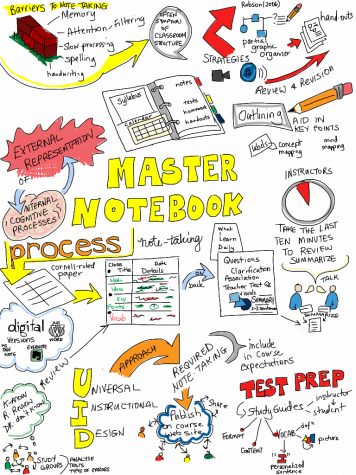 Barriers to NOTE TAKING
Memory
Attention - Filtering
Slow processing
spelling
handwriting
OFTEN
CLASSROOM
STRUCTURE
Robson (2006)
partial
graphic
organizer
hand-outs
STRATEGIES
REVIEW & REVISION
Syllabus
Calendar
notes
tests
homework
handouts
Outlining
AID IN
KEY POINTS
labels
concept
mapping
mind
mapping
EXTERNAL
REPRESENTATION
OF
INTERNAL
COGNITIVE
PROCESSES
MASTER
NOTEBOOK
INSTRUCTORS
TAKE THE LAST
TEN MINUTES
TO REVIEW
SUMMARIZE
process
note-taking
cornell-ruled
paper
Class
Title
Date
Details
Main
Idea
Key
Points
Vocab
ON
back
What
I
Learn
Daily
Questions
Clarification
Association
Teacher Test ?
SUMMARY
TALK
SUMMARIZE
digital
VERSIONS
EVERNOTE
WORD
REVIEW
K-KNOW
R-REVIEW
DK-don't know
STUDY
GROUPS
ANALYSE
TESTS
TYPE OF ERRORS
UID
UNIVERSAL
INSTRUCTIONAL
DESIGN
APPROACH
REQUIRED
NOTE TAKING
include
in course
expectations
Publish
on course
web site
Share
TEST PREP
Study Guides
instructor
student
FORMAT
CONTENT
VOCAB
def'n
picture
personalized
sentence